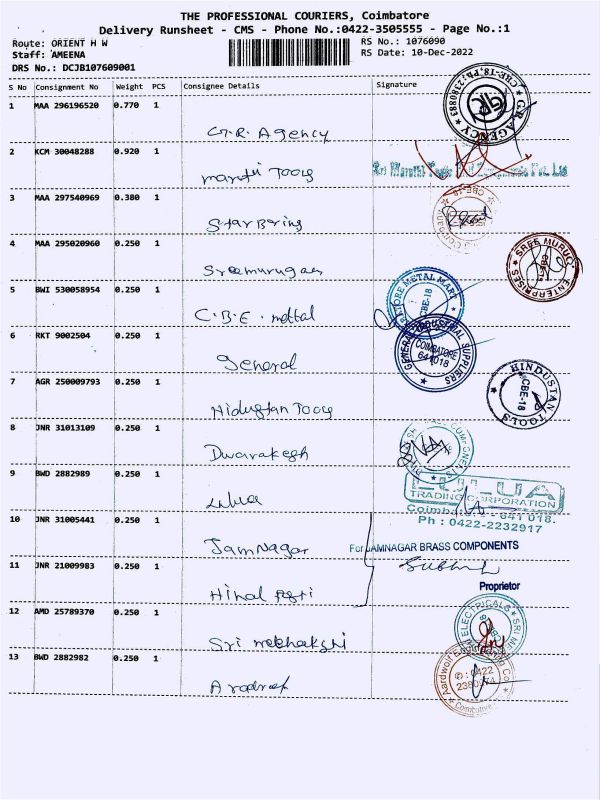 THE PROFESSIONAL COURIERS, Coimbatore
Delivery Runsheet - CMS - Phone No.:0422-3505555 - Page No.:1
Route: ORIENT H W
Staff: AMEENA
DRS No.: DCJB107609001
RS No.: 1076090
RS Date: 10-Dec-2022
S No Consignment No Weight PCS Consignee Details Signature
1 MAA 296196520 0.770 1
G.R. Agency
G.R. AGENCY CBE-18. Ph: 2380883
GR
2 KCM 30048288 0.920 1
maruti Tools
Sri Maruthi Tools Pvt. Ltd
3 MAA 297540969 0.380 1
Star Bering
CBE-18
4 MAA 295020960 0.250 1
Sree murugan
SREE MURUGAN ENTERPRISES
CBE-11
5 BWI 530058954 0.250 1
C.B.E. mettal
METAL MART
CBE-18
6 RKT 9002504 0.250 1
General
GENERAL INDUSTRIAL SUPPLIERS
COIMBATORE
641 018
7 AGR 250009793 0.250 1
Hidustan Tools
HINDUSTAN TOOLS
CBE-18
8 JNR 31013109 0.250 1
Dwarakesh
COMPONENTS
9 BWD 2882989 0.250 1
Lulua
LULUA
TRADING CORPORATION
Coimbatore - 641 018.
Ph : 0422-2232917
10 JNR 31005441 0.250 1
Jamnagar
For JAMNAGAR BRASS COMPONENTS
11 JNR 21009983 0.250 1
Hinal
Proprietor
12 AMD 25789370 0.250 1
Sri meenakshi
ELECTRICALS
SRI ME
13 BWD 2882982 0.250 1
Aardwolf
0422
Coimbatore